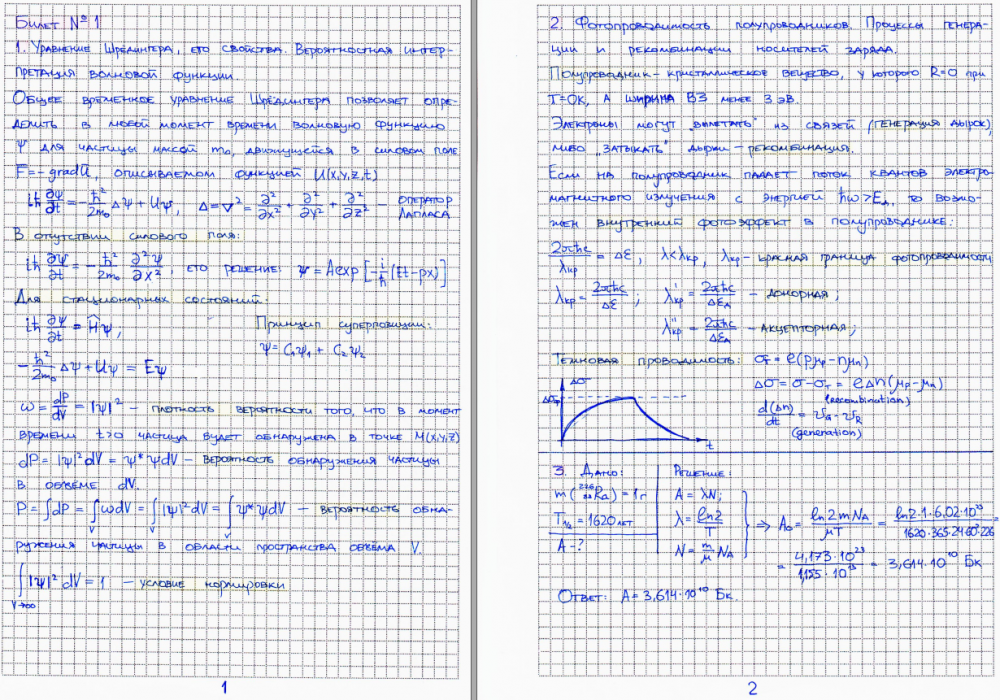 Билет №1
1. Уравнение Шрёдингера, его свойства. Вероятностная интер-
претация волновой функции.
Общее временное уравнение Шрёдингера позволяет опре-
делить в любой момент времени волновую функцию
Ψ для частицы массой m₀, движущейся в силовом поле
F = - gradU, описываемом функцией U(x,y,z,t)
iħ ∂ψ/∂t = - ħ²/2m₀ Δψ + Uψ, Δ = ∇² = ∂²/∂x² + ∂²/∂y² + ∂²/∂z² - оператор Лапласа
В отсутствии силового поля:
iħ ∂ψ/∂t = - ħ²/2m₀ ∂²ψ/∂x², его решение: ψ = A exp[-i/ħ (Et - px)]
Для стационарных состояний:
iħ ∂ψ/∂t = Ĥψ; Принцип суперпозиции:
ψ = C₁ψ₁ + C₂ψ₂
- ħ²/2m₀ Δψ + Uψ = Eψ
ω = dP/dV = |ψ|² - плотность вероятности того, что в момент
времени t>0 частица будет обнаружена в точке M(x,y,z)
dP = |ψ|² dV = ψ*ψdV - вероятность обнаружения частицы
в объёме dV.
P = ∫dP = ∫ωdV = ∫|ψ|² dV = ∫ψ*ψdV - вероятность обна-
V V V
ружения частицы в области пространства объёма V.
∫|ψ|² dV = 1 - условие нормировки
V→∞
1
2. Фотопроводимость полупроводников. Процессы генера-
ции и рекомбинации носителей заряда.
Полупроводник - кристаллическое вещество, у которого R=0 при
T=0K, а ширина ВЗ менее 3 эВ.
Электроны могут „вылетать" из связей (генерация дырок),
либо „затыкать" дырки - рекомбинация.
Если на полупроводник падает поток квантов электро-
магнитного излучения с энергией ħω > E_Δ, то возмо-
жен внутренний фотоэффект в полупроводнике:
2πħc/λкр = ΔE, λ<λкр, λкр - красная граница фотопроводимости
λкр = 2πħc/ΔE; λ'кр = 2πħc/ΔEд - донорная;
λ''кр = 2πħc/ΔEА - акцепторная;
Темновая проводимость: σт = e(pμp - nμn)
Δσ = σ - σт = eΔn(μp - μn)
(recombination)
d(Δn)/dt = vG - vR
(generation)
Δσ
Δσ₀
t
3. Дано: Решение:
m(²²⁶₈₈Ra) = 1г A = λN;
T₁/₂ = 1620 лет λ = ln2/T
A - ? N = m/μ NA
⇒ A₀ = ln2 m NA/μT = ln2·1·6,02·10²³/1620·365·24·60²·226
= 4,173·10²³/1,155·10¹³ = 3,614·10¹⁰ Бк
Ответ: A = 3,614·10¹⁰ Бк.
2